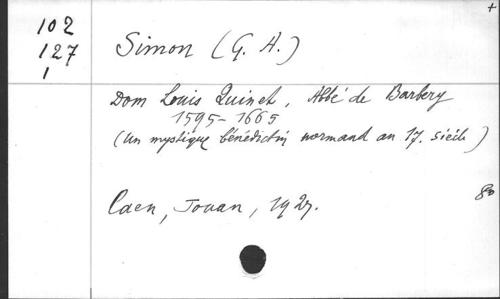 +
102
127
1
Simon (G. A.)
Dom Louis Quinet, Abbé de Barbery
1595-1665
(Un mystique bénédictin normand au 17. siècle)
Caen, Jouan, 1927.
8°